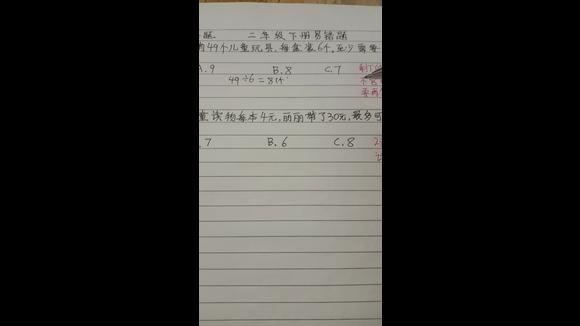 题 二年级下册易错题
49个儿童玩具,每盒装6个,至少需要
A.9 B.8 C.7
49÷6=8(个)
童读物每本4元,丽丽带了30元,最多可
7 B.6 C.8